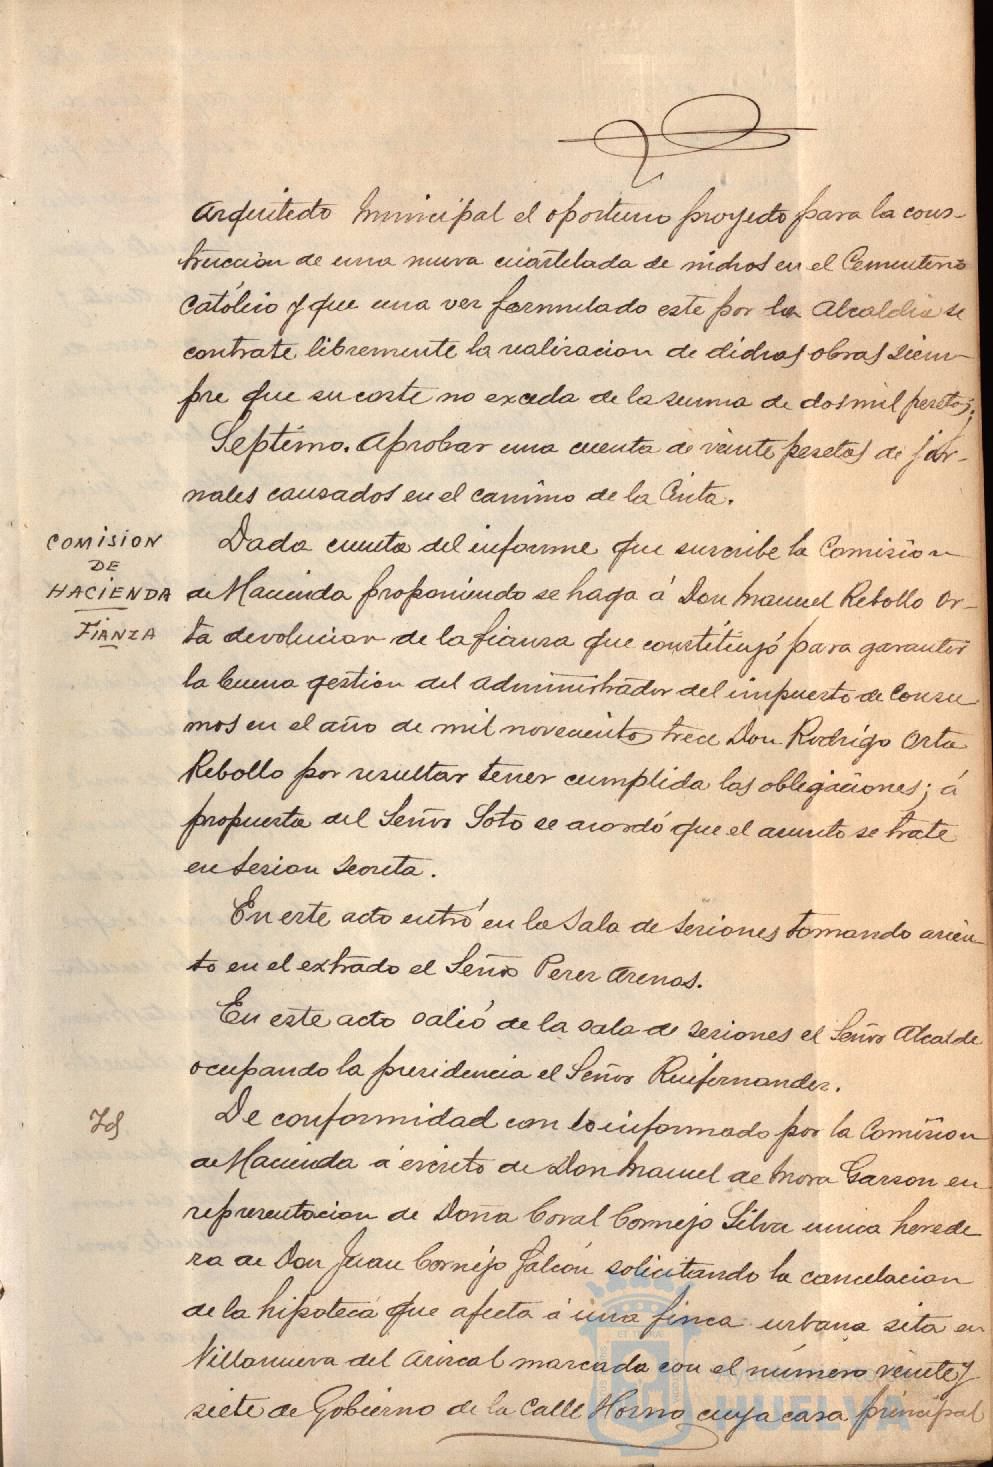 Arquitecto Municipal el oportuno proyecto para la cons-
trucción de una nueva cuartelada de nichos en el Cementerio
Católico y que una vez formulado este por la Alcaldia se
contrate libremente la realizacion de dichas obras siem-
pre que su coste no exceda de la suma de dos mil pesetas;
Septimo. Aprobar una cuenta de veinte pesetas de jor-
nales causados en el camino de la Cinta.
COMISION
DE
HACIENDA
FIANZA
Dada cuenta del informe que suscribe la Comision
de Hacienda proponiendo se haga á Don Manuel Rebollo Or-
ta devolucion de la fianza que constituyó para garantir
la buena gestion del administrador del impuesto de Consu
mos en el año de mil novecientos trece Don Rodrigo Orta
Rebollo por resultar tener cumplida las obligaciones; á
propuesta del Señor Soto se acordó que el asunto se trate
en sesion secreta.
En este acto entró en la Sala de sesiones tomando asien-
to en el extrado el Señor Perez Arenas.
En este acto salió de la sala de sesiones el Señor Alcalde
ocupando la presidencia el Señor Ruifernandez.
Id
De conformidad con lo informado por la Comision
de Hacienda á escrito de Don Manuel de Mora Garzon en
representacion de Doña Coral Cornejo Silva unica herede
ra de Don Juan Cornejo Falcón solicitando la cancelacion
de la hipoteca que afecta á una finca urbana sita en
Villanueva del Ariscal marcada con el número veinte y
siete de Gobierno de la Calle Horno cuya casa principal
HUELVA